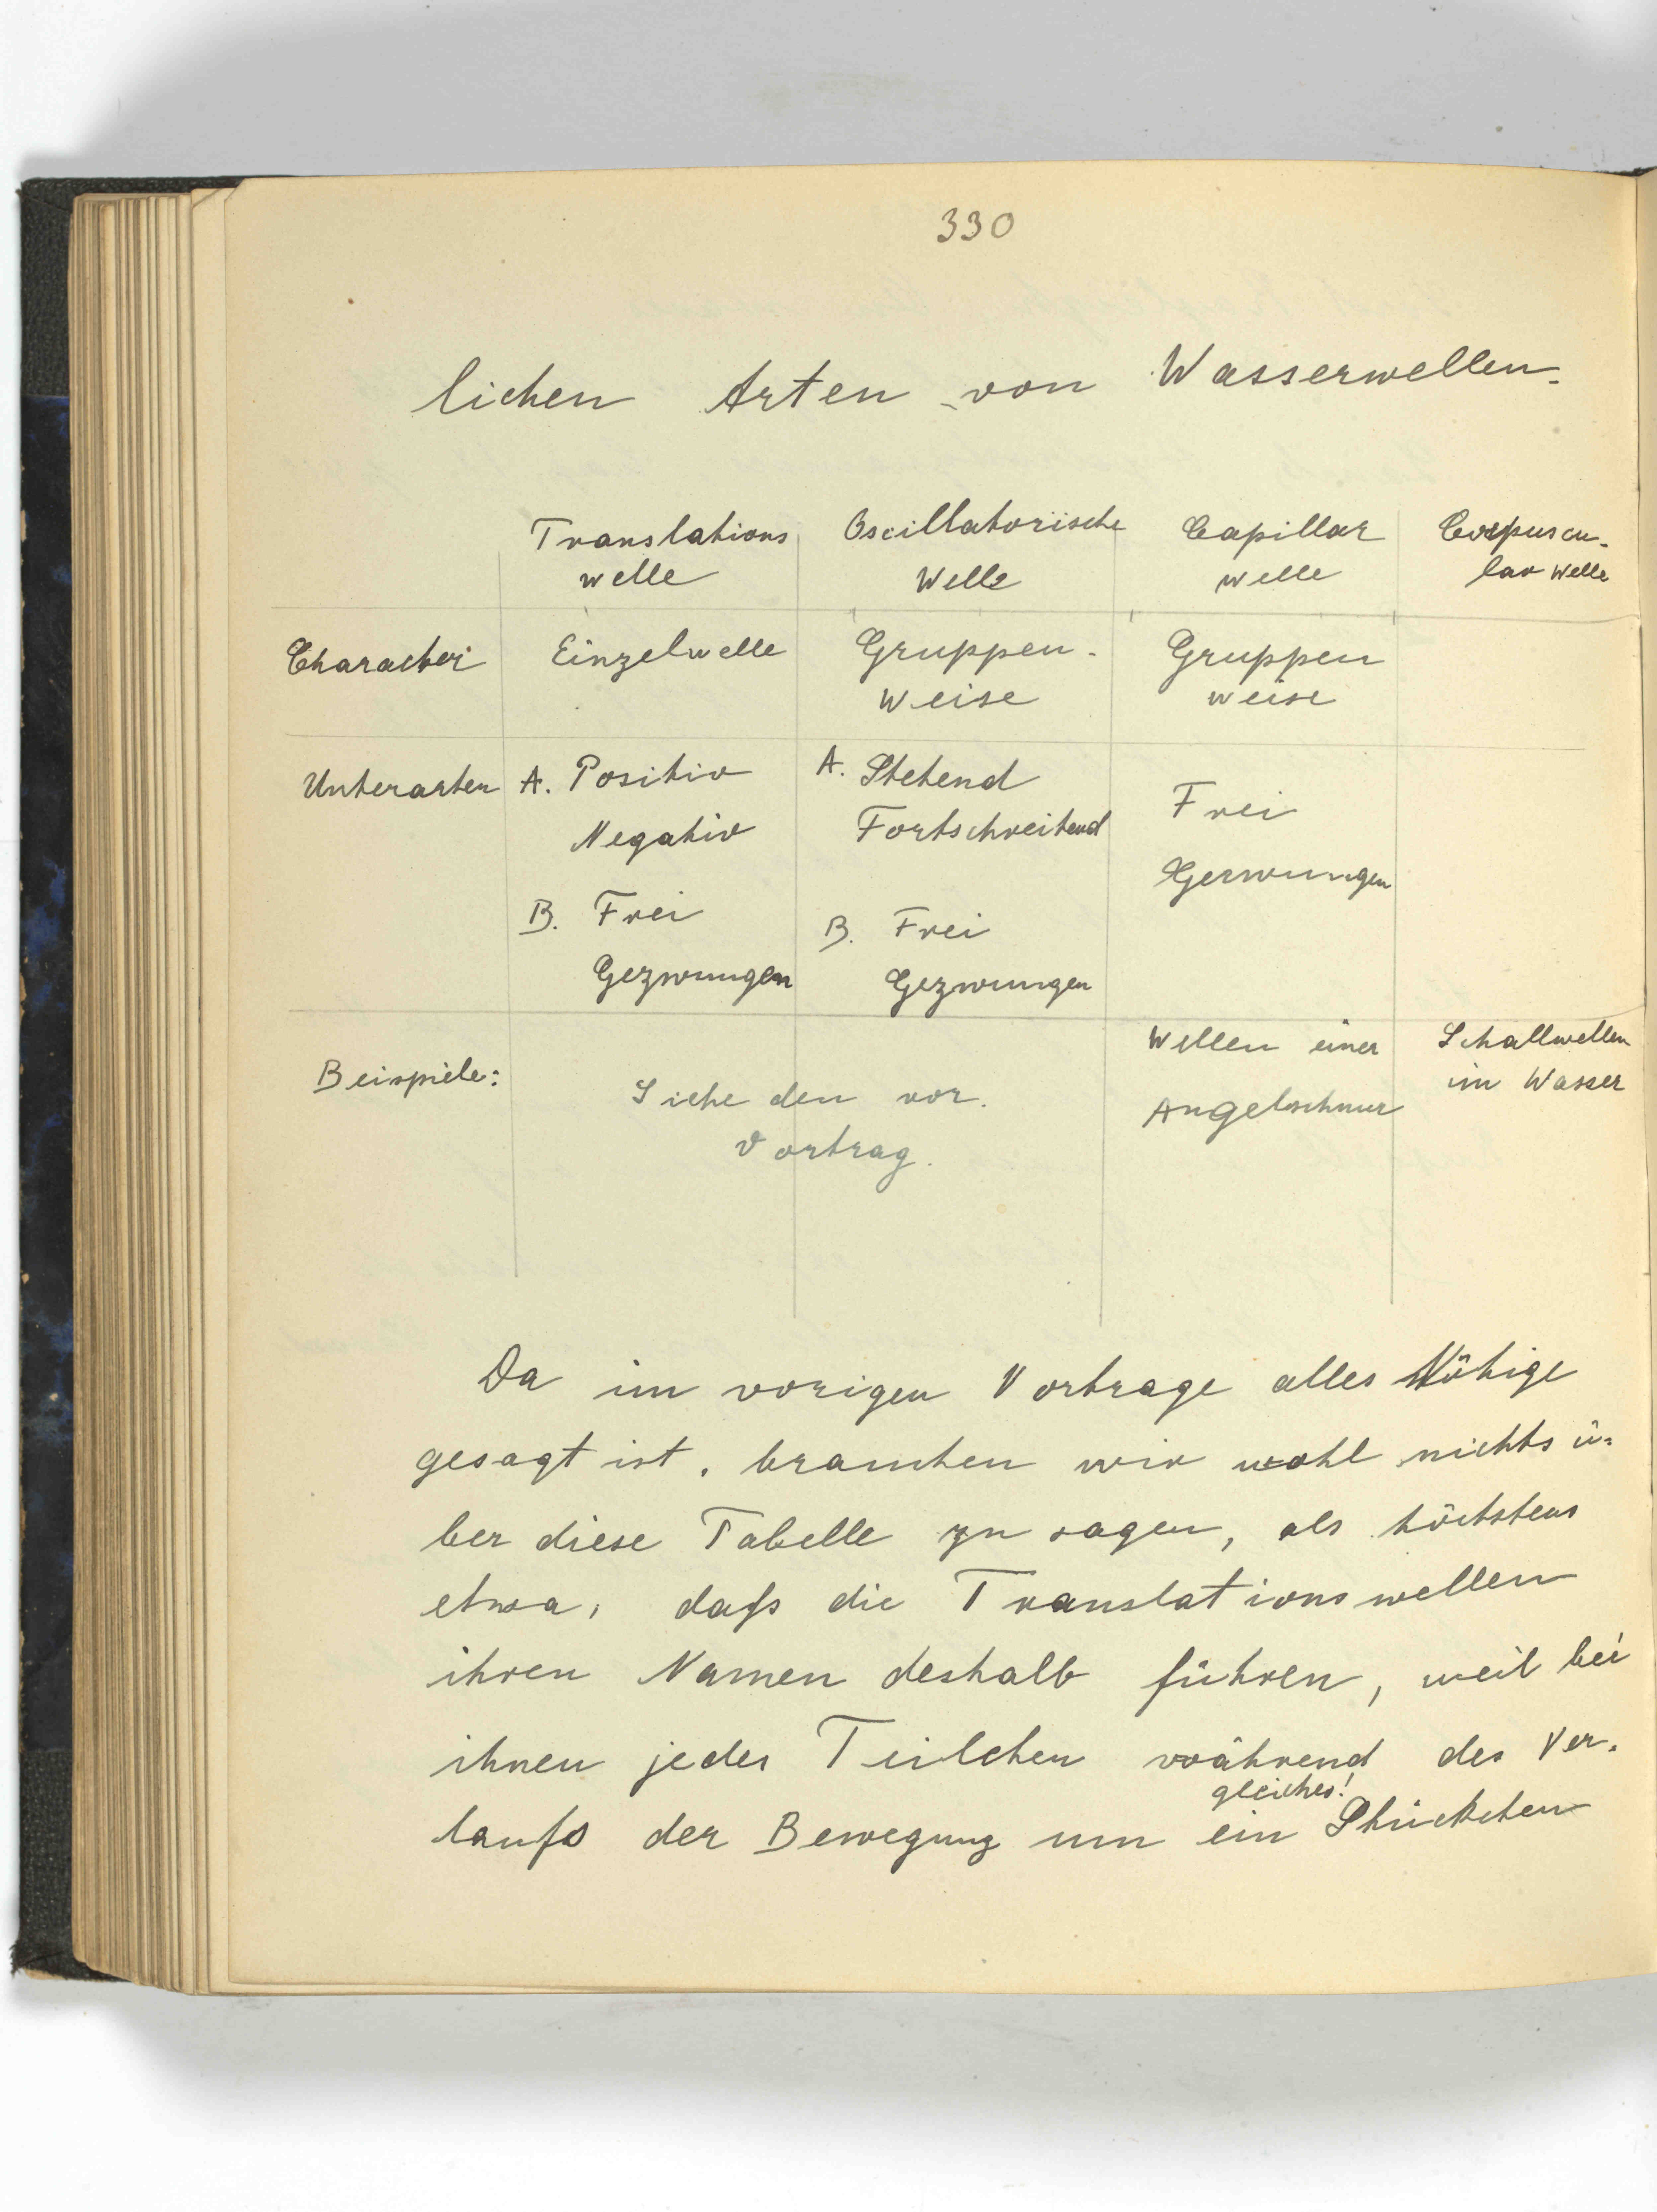 330
lichen Arten von Wasserwellen.
Translations Oscillatorische Capillar Corpuscu-
welle Welle welle lar Welle
Character Einzelwelle Gruppen- Gruppen
weise weise
Unterarten A. Positiv A. Stehend Frei
Negativ Fortschreitend Gezwungen
B. Frei B. Frei
Gezwungen Gezwungen
Beispiele: Siehe den vor. Wellen einer Schallwellen
Vortrag. Angelschnur im Wasser
Da im vorigen Vortrage alles Nötige
gesagt ist, brauchen wir wohl nichts ü-
ber diese Tabelle zu sagen, als höchstens
etwa, daſs die Translationswellen
ihren Namen deshalb führen, weil bei
ihnen jedes Teilchen während des Ver-
gleiches!
laufs der Bewegung um ein Stückchen